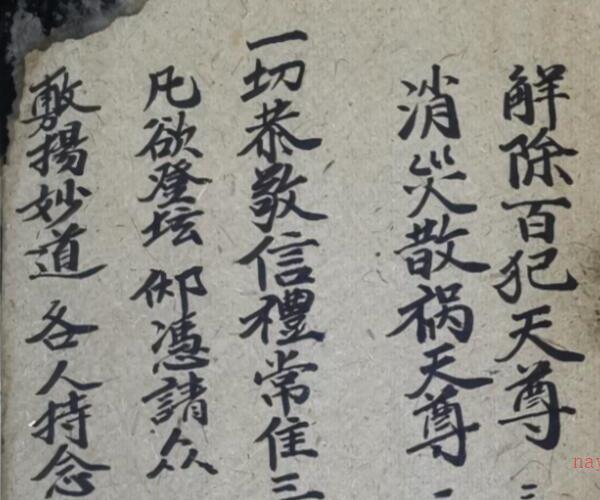 解除百犯天尊 二
消災散祸天尊 二
一切恭敬信禮常住三
凡欲登坛 仰憑請众
敷揚妙道 各人持念
nay